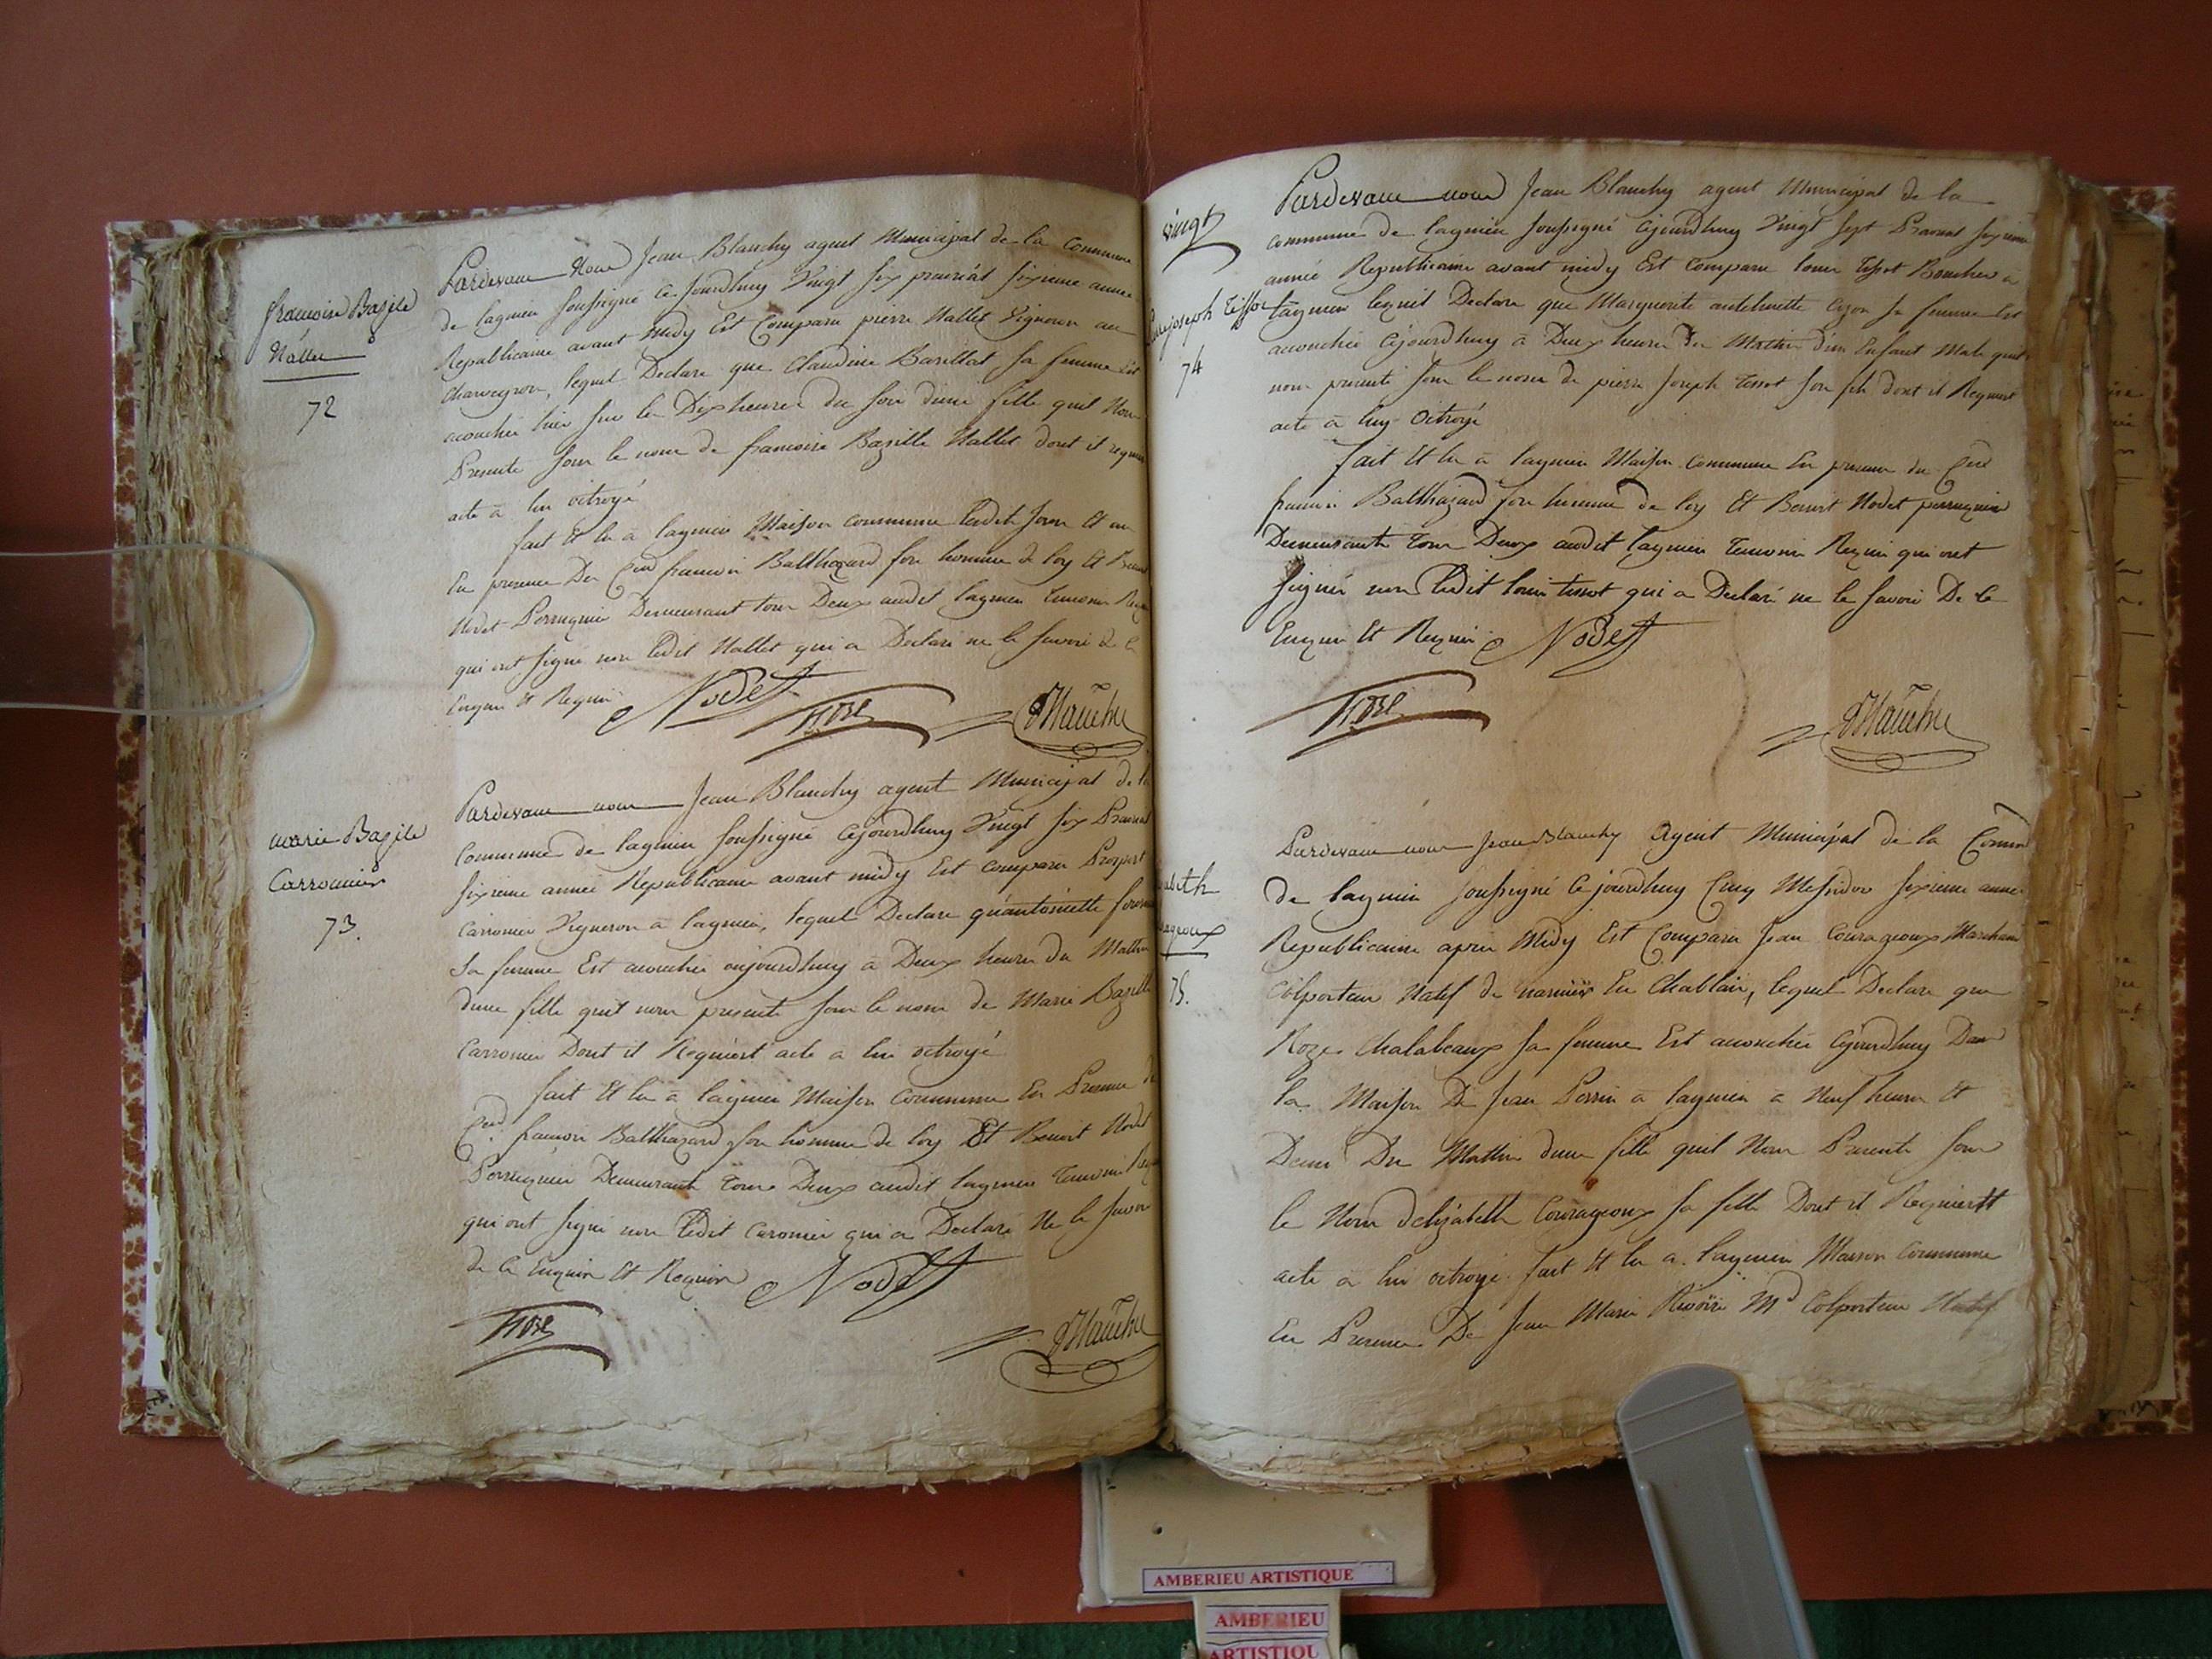 francoise Bazile
Nallet
72
Pardevant Nous Jean Blanchy agent Municipal de la Commune
de lagnieu soussigné Ce jourdhuy Vingt six prairial sixieme année
Republicaine avant midy Est Comparu pierre Nallet Vigneron au
Charveyron, lequel Declare que Claudine Barillot sa femme Est
acouchée hier sur les Dix heures du soir dune fille quil Nous
Presente sous le nom de francoise Bazille Nallet dont il requiert
acte à lui octroyé
fait Et lu à lagnieu Maison commune ledit Jour Et an
En presence Des Cens francois Balthazard fore homme de loy Et Benoit
Nodet Perruquier Demeurant tous Deux audit lagnieu temoins Requis
qui ont signé non ledit Nallet qui a Declaré ne le savoir de ce
Enquis Et Requis Nodet
fore Blanchy
marie Bazile
Carronnier
73.
Pardevant nous Jean Blanchy agent Municipal de la
Commune de lagnieu soussigné cejourdhuy Vingt six Prairial
sixieme année Republicaine avant midy Est comparu Prospert
Carronier Vigneron a lagnieu, lequel Declare quantoinette
sa femme Est acouchée aujourdhuy à Deux heures du Mattin
dune fille quil nous presente sous le nom de Marie Bazille
Carronier Dont il Requiert acte a lui octroyé
fait Et lu a lagnieu Maison Commune En Presence de
Cens francois Balthazard fore homme de loy Et Benoit Nodet
Perruquier Demeurants tous Deux audit lagnieu temoins Requis
qui ont signé non ledit Caronier qui a Declaré Ne le savoir
de ce Enquis Et Requis Nodet
fore Blanchy
vingt
joseph Tissot
74
Pardevant nous Jean Blanchy agent Municipal de la
commune de lagnieu soussigné cejourdhuy Vingt sept Prairial sixieme
année Republicaine avant midy Est comparu louis tissot Boucher à
lagnieu lequel Declare que Marguerite anthelmette Cizon sa femme Est
acouchée cejourdhuy à Deux heures Du Mattin d'un Enfant Male quil
nous presente sous le nom de pierre Joseph tissot son fils dont il Requiert
acte à luy Octroyé
fait Et lu à lagnieu Maison commune En presence des Cens
francois Balthazard fore homme de loy Et Benoit Nodet perruquier
Demeurants tous Deux audit lagnieu temoins Requis qui ont
signé non ledit louis tissot qui a Declaré ne le savoir De ce
Enquis Et Requis Nodet
fore Blanchy
abeth
ageoux
75.
Pardevant nous Jean Blanchy Agent Municipal de la Comm
de lagnieu soussigné Ce jourdhuy Cinq Messidor sixieme année
Republicaine apres Midy Est Comparu Jean Courageoux Marchand
Colporteur Natif de En Chablais, lequel Declare que
Roze Chalabeaux sa femme Est acouchée cejourdhuy Dans
la Maison De Jean Perrin à lagnieu a Neuf heures Et
Demi Du Mattin dune fille quil Nous Presente sous
le Nom delizabeth Courageoux sa fille Dont il Requiert
acte a lui octroyé fait Et lu a lagnieu Maison Commune
En Presence De Jean Marie Rivoire Md Colporteur Natif
AMBERIEU ARTISTIQUE
AMBERIEU
ARTISTIQU